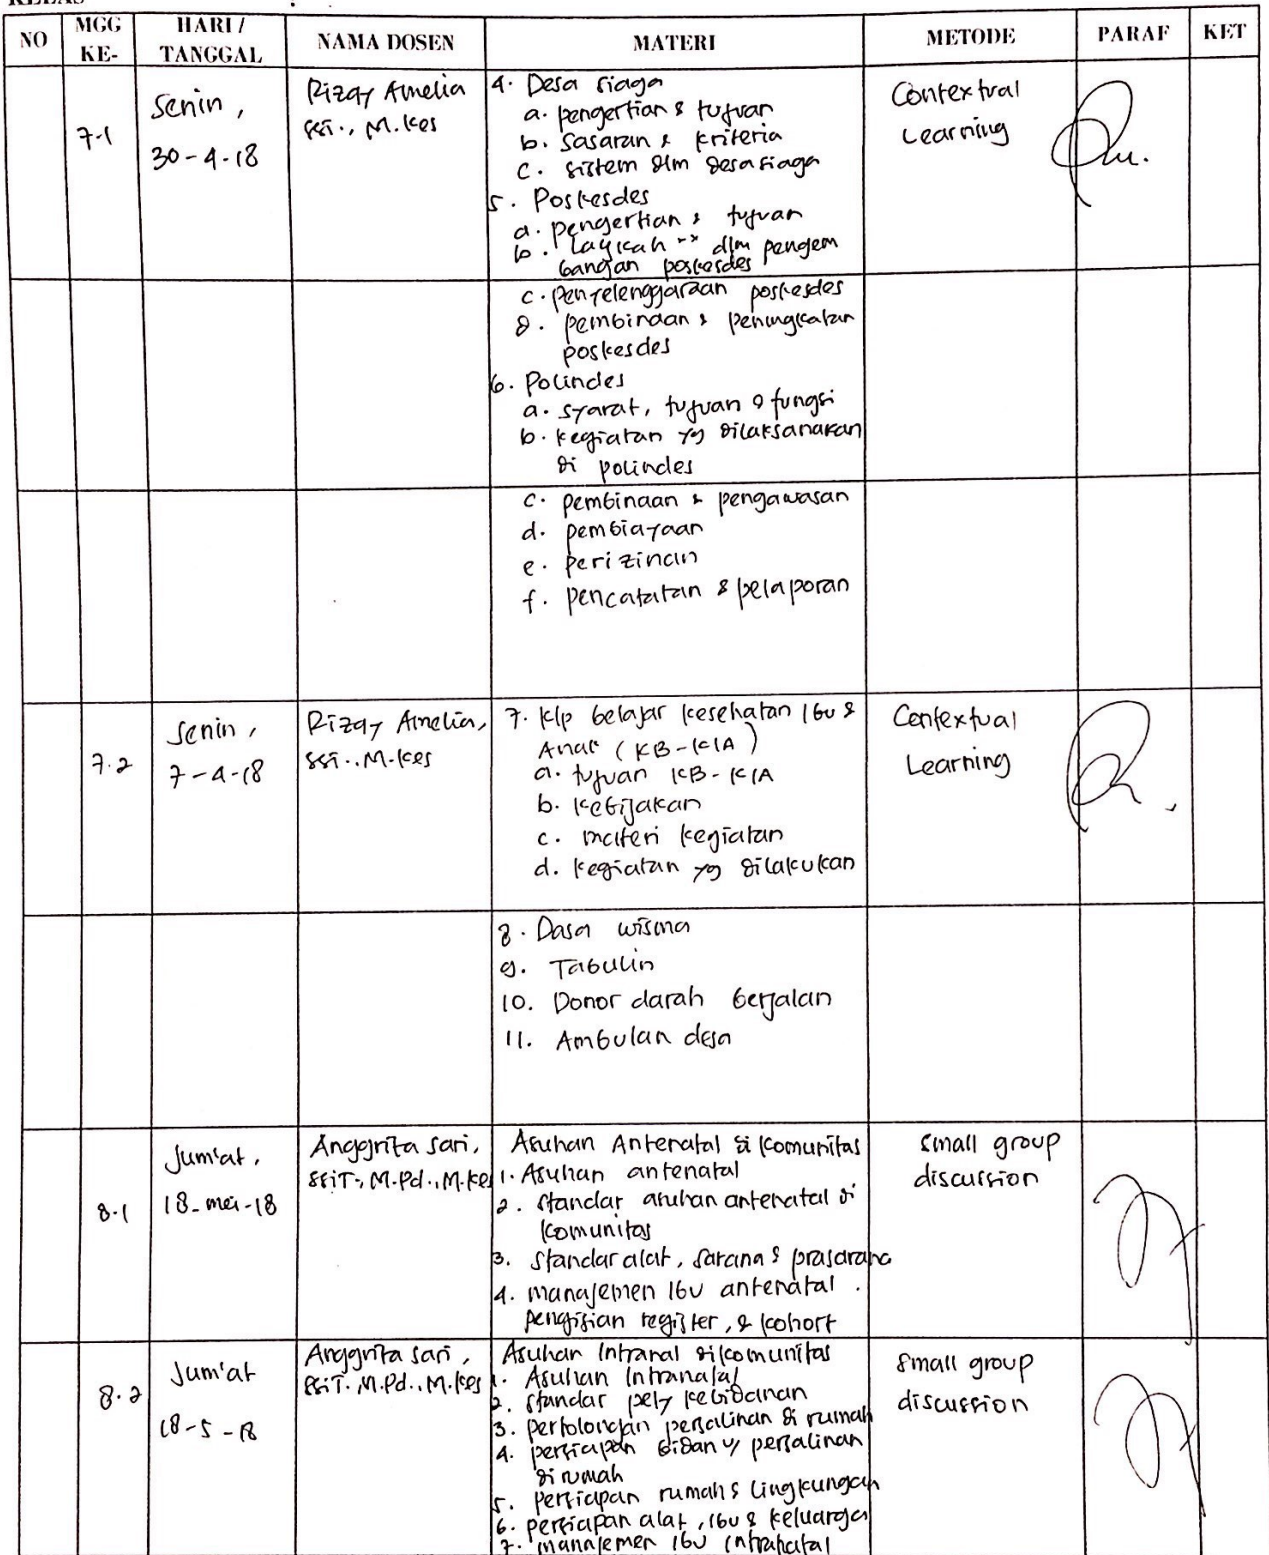 KELAS :
NO MGG KE- HARI / TANGGAL NAMA DOSEN MATERI METODE PARAF KET
7.1
Senin,
30-4-18
Rizqy Amelia
SSi., M.Kes
4. Desa siaga
a. pengertian & tujuan
b. Sasaran & kriteria
c. sistem dlm desa siaga
5. Poskesdes
a. pengertian & tujuan
b. Langkah" dlm pengem
bangan poskesdes
Contextual
Learning
c. penyelenggaraan poskesdes
d. pembinaan & peningkatan
poskesdes
6. Polindes
a. syarat, tujuan & fungsi
b. kegiatan yg dilaksanakan
di polindes
c. pembinaan & pengawasan
d. pembiayaan
e. perizinan
f. pencatatan & pelaporan
7.2
Senin,
7-4-18
Rizqy Amelia,
SSi., M.Kes
7. Klp belajar kesehatan Ibu &
Anak (KB-KIA)
a. tujuan KB-KIA
b. kebijakan
c. materi kegiatan
d. kegiatan yg dilakukan
Contextual
Learning
8. Dasa wisma
9. Tabulin
10. Donor darah berjalan
11. Ambulan desa
8.1
Jum'at,
18-mei-18
Anggrita Sari,
SSiT., M.Pd., M.Kes
Asuhan Antenatal di komunitas
1. Asuhan antenatal
2. standar asuhan antenatal di
komunitas
3. standar alat, sarana & prasarana
4. manajemen ibu antenatal.
pengisian register, & kohort
small group
discussion
8.2
Jum'at
18-5-18
Anggrita Sari,
SSiT. M.Pd., M.Kes
Asuhan Intranal di komunitas
1. Asuhan Intranatal
2. standar pely kebidanan
3. pertolongan persalinan di rumah
4. persiapan bidan u/ persalinan
di rumah
5. persiapan rumah & lingkungan
6. persiapan alat, ibu & keluarga
7. manajemen ibu intranatal
small group
discussion